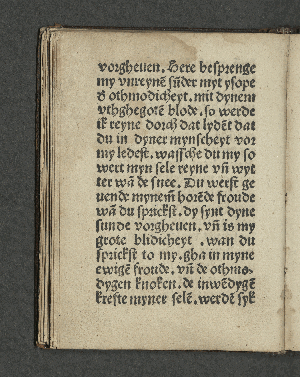 vorgheuen. Here besprenge
my vnreynē sūder myt ysope
d̉ othmodicheyt. mit dynem
vthghegotē blode. so werde
ik reyne dorch dat lydēt dat
du in dyner mynscheyt vor
my ledest. wassche du my so
wert myn sele reyne vñ wyt
ter wā de snee. Du werst ge
uende mynem̄ horēde froude
wā du sprickst. dy synt dyne
sunde vorgheuen. vñ is my
grote blidicheyt . wan du
sprickst to my. gha in myne
ewigē froude. vñ de othmo-
dygen knoken. de inwēdygē
krefte myner selē. werdē syk